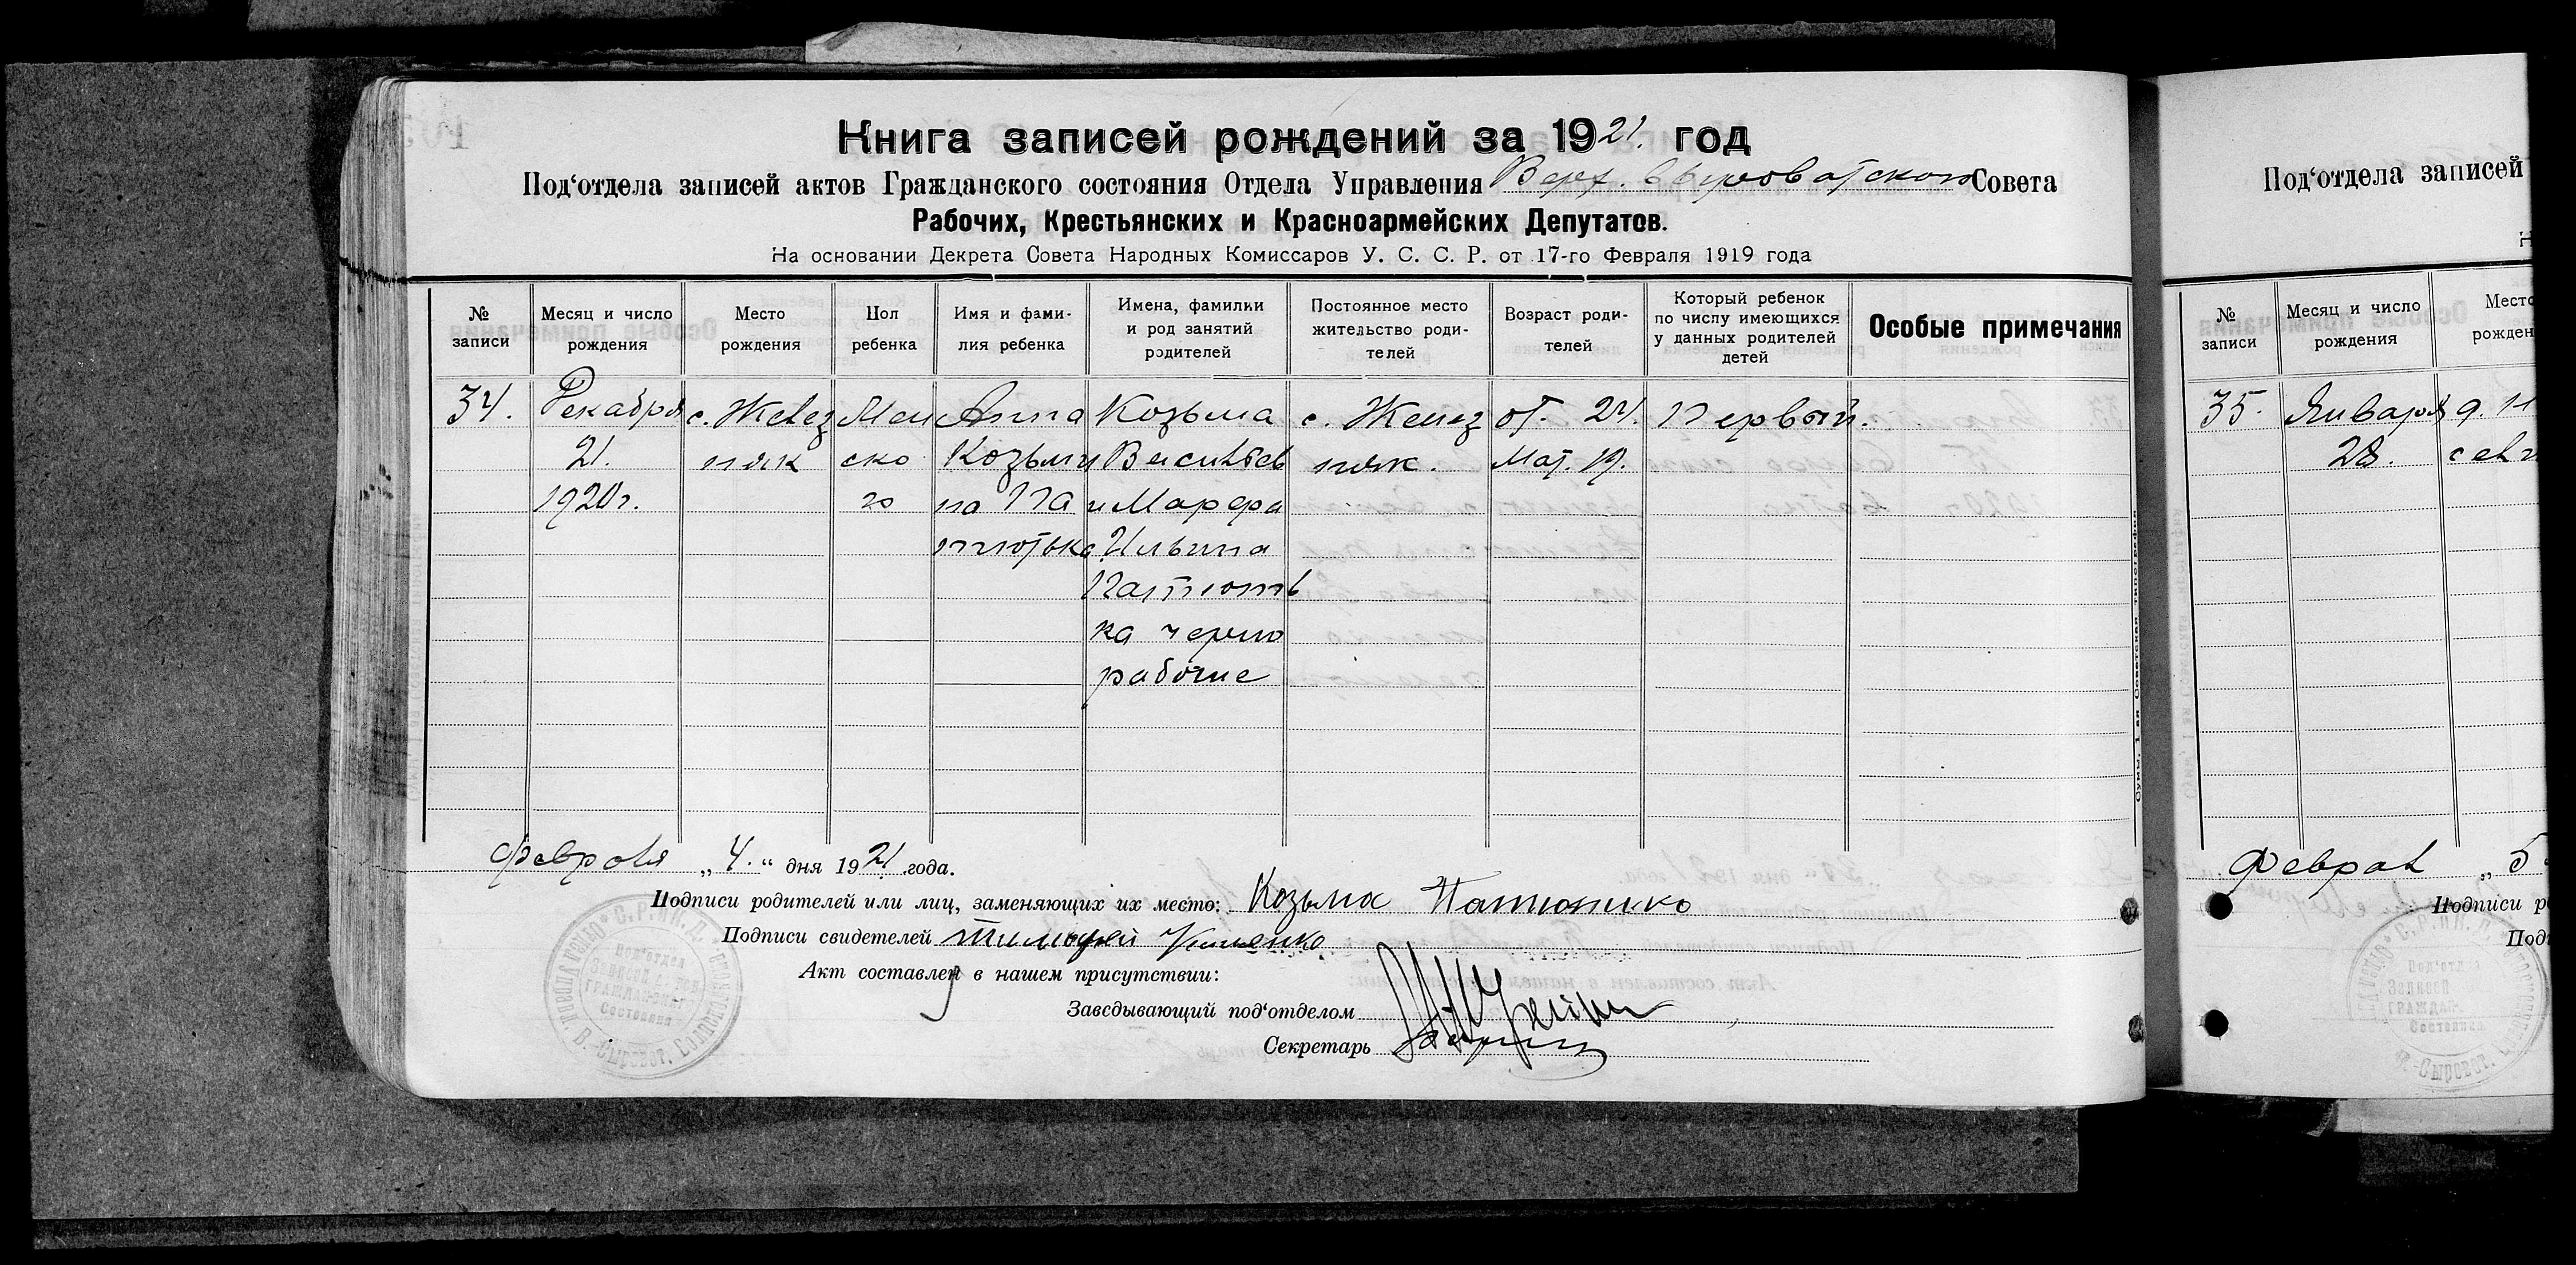 Книга записей рождений за 1921. год
Под‘отдела записей актов Гражданского состояния Отдела Управления Верх. Сыроватского Совета
Рабочих, Крестьянских и Красноармейских Депутатов.
На основании Декрета Совета Народных Комиссаров У. С. С. Р. от 17-го Февраля 1919 года
№ записи
Месяц и число рождения
Место рождения
Пол ребенка
Имя и фами-
лия ребенка
Имена, фамилии
и род занятий
родителей
Постоянное место
жительство роди-
телей
Возраст роди-
телей
Который ребенок
по числу имеющихся
у данных родителей
детей
Особые примечания
34. Декабря с. Желез Жен Анна Козьма с. Желез от. 24. Первый.
21. няк ско Козьми Васильев няк. Мат. 19.
1920 г. го на Па и Марфа
Ильина
ка черно
рабочие
Февраля „4.“ дня 1921 года.
Подписи родителей или лиц, заменяющих их место: Козьма
Подписи свидетелей Тимофей
Акт составлен в нашем присутствии:
Заведывающий под‘отделом
Секретарь
Сумы, 1-ая Советская типография
Под‘отдела записей
№ записи
Месяц и число рождения
Место
рожден
35. Января
28.
Феврал „5
Подписи р
Под